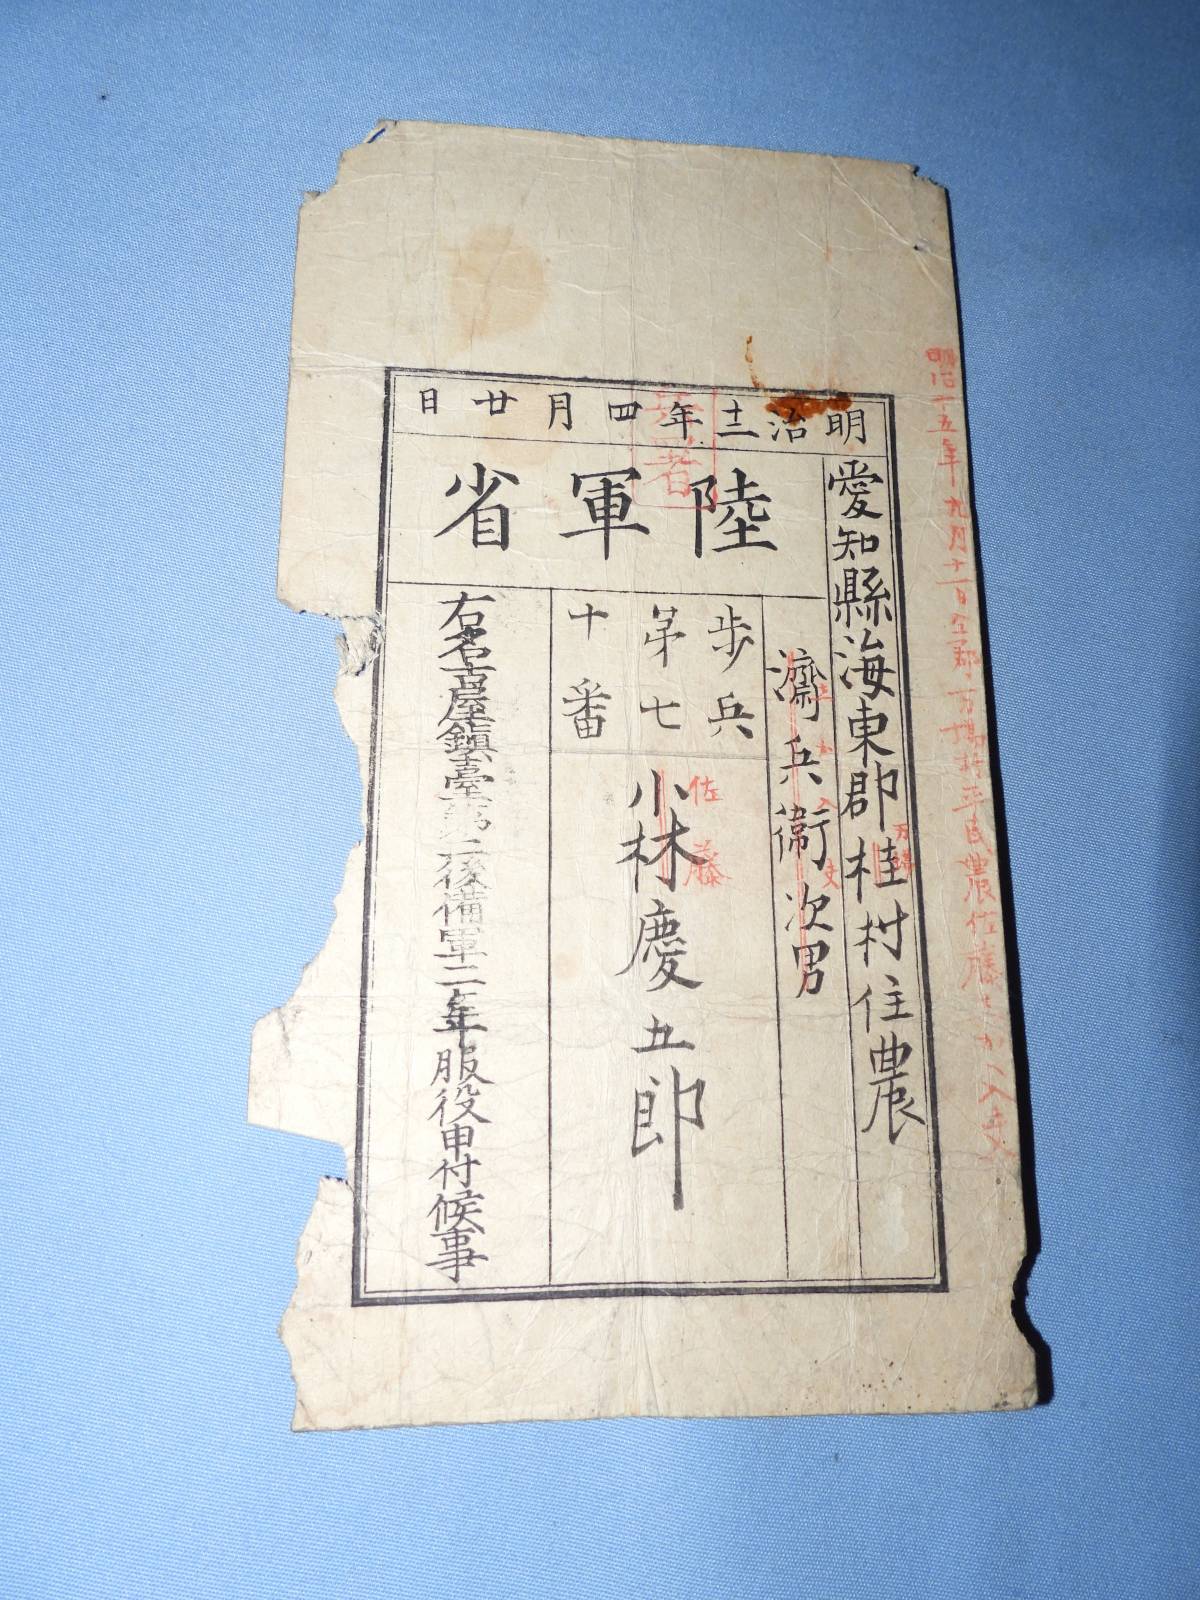 明治十五年九月十一日仝郡万場村平民農佐藤
明治十二年四月廿日
陸軍省
愛知縣海東郡桂村住農
万場
濟兵衞次男
歩兵
第七
十番
小林慶五郎
佐藤
右名古屋鎮臺第二後備軍二ヶ年服役申付候事